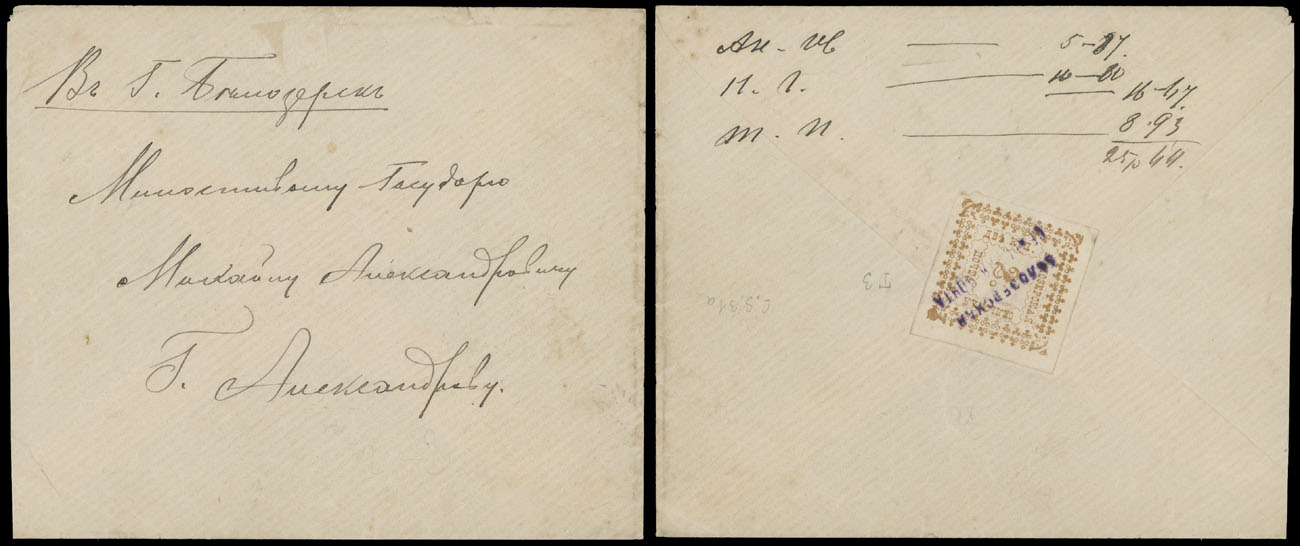 Въ Г. Бѣлозерскъ
Милостивому Государю
Михаилу Александровичу
Г. Александрову.
Ан. - 
Н. Г.
Т. П.
5-87.
10-60
16-47.
8.93
25р 44.
ДВА
2
БѢЛОЗЕРСКАЯ
ПОЧТА
Т 3
C.S.31a